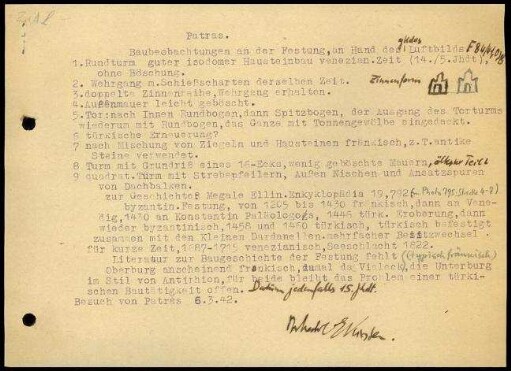 Patras.
Baubeobachtungen an der Festung, an Hand des Luftbilds
1. Rundturm guter isodomer Hausteinbau venezian. Zeit (14./5. Jhdt),
ohne Böschung.
2. Wehrgang m. Schießscharten derselben Zeit. Zinnenform
3. doppelte Zinnenreihe, Wehrgang erhalten.
4. Außenmauer leicht geböscht.
5. Tor: nach Innen Rundbogen, dann Spitzbogen, der Ausgang des Torturms
wiederum mit Rundbogen, das Ganze mit Tonnengewölbe eingedeckt.
6 türkische Erneuerung?
7 nach Mischung von Ziegeln und Hausteinen fränkisch, z.T. antike
Steine verwendet.
8 Turm mit Grundriß eines 16-Ecks, wenig geböschte Mauern, ältester Teil?
9 quadrat. Turm mit Strebepfeilern, Außen Nischen und Ansatzspuren
von Dachbalken.
zur Geschichte: Megale Ellin. Enkyklopädia 19,792
byzantin. Festung, von 1205 bis 1430 fränkisch, dann an Vene-
dig, 1430 an Konstantin Paläologos, 1446 türk. Eroberung, dann
wieder byzantinisch, 1458 und 1460 türkisch, türkisch befestigt
zusammen mit den Kleinen Dardanellen. mehrfacher Besitzwechsel
für kurze Zeit, 1687-1715 venezianisch, Seeschlacht 1822.
Literatur zur Baugeschichte der Festung fehlt (typisch fränkisch)
Oberburg anscheinend fränkisch, zumal da Vieleck, die Unterburg
im Stil von Antirhion, für beide bleibt das Problem einer türki-
schen Bautätigkeit offen. Datum jedenfalls 15. Jhdt.
Besuch von Patras 6.3.42.